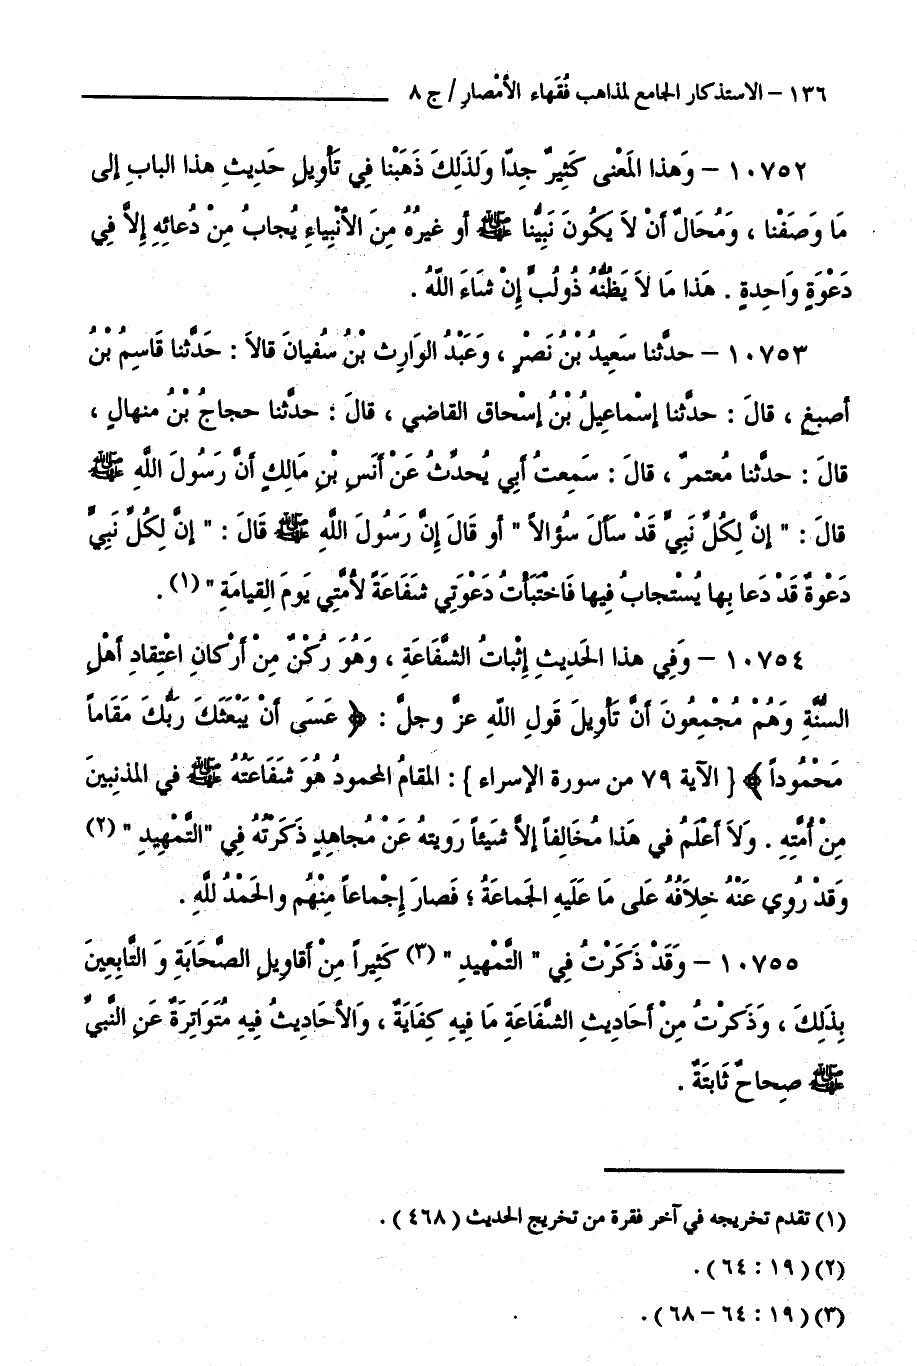 ١٣٦ - الاستذكار الجامع لمذاهب فُقَهاء الأمْصارِ / ج ٨
١٠٧٥٢ - وَهذا المَعْنى كَثِيرٌ جِدّا وَلذلِكَ ذَهَبْنا فِي تَأْوِيلِ حَدِيثِ هذا البابِ إلى
مَا وَصَفْنا ، وَمُحَالٌ أَنْ لاَ يَكُونَ نَبِيُّنا ﷺ أو غيرُهُ مِنَ الأنْبِياءِ يُجابُ مِنْ دُعائِهِ إلاَّ فِي
دَعْوَةٍ وَاحِدةٍ . هَذا مَا لاَ يَظُنُّهُ ذُو لُبٍّ إنْ شاءَ اللَّهُ .
١٠٧٥٣ - حدَّثنا سَعِيدُ بْنُ نَصْرٍ ، وَعَبْدُ الوَارِثِ بْنُ سُفيانَ قالاَ : حَدَّثنا قَاسِمُ بْنُ
أصبغ ، قالَ : حدَّثنا إسْماعِيلُ بْنُ إسْحاق القاضي ، قالَ : حدَّثنا حجاجُ بْنُ منهالٍ ،
قالَ : حدَّثنا مُعتمرٌ ، قالَ : سَمِعتُ أبِي يُحدِّثُ عَنْ أنَسِ بْنِ مَالِكٍ أنَّ رَسُولَ اللَّهِ ﷺ
قالَ : " إنَّ لِكُلِّ نَبِيٍّ قَدْ سأَلَ سُؤالاً " أو قَالَ إنَّ رَسُولَ اللَّهِ ﷺ قَالَ : " إنَّ لِكُلِّ نَبِيٍّ
دَعْوةٌ قَدْ دَعا بِها يُسْتجابُ فِيها فَاخْتَبَأْتُ دَعْوَتِي شفَاعَةً لأُمَّتِي يَومَ القِيامَةِ " (١) .
١٠٧٥٤ - وَفِي هذا الحَديثِ إثْباتُ الشَّفَاعَةِ ، وَهُوَ رُكْنٌ مِنْ أَرْكانِ اعْتِقادِ أَهْلِ
السُّنَّةِ وَهُمْ مُجْمِعُونَ أنَّ تَأْوِيلَ قَولِ اللَّهِ عزَّ وجلَّ : ﴿ عَسَى أنْ يَبْعَثَكَ رَبُّكَ مَقَاماً
مَحْمُوداً ﴾ { الآية ٧٩ من سورة الإسراء } : المقامُ المحمودُ هُوَ شفَاعَتُهُ ﷺ في المذنبِينَ
مِنْ أُمَّتِهِ . وَلاَ أعْلَمُ في هَذا مُخَالِفاً إلاَّ شَيئاً رَويتهُ عَنْ مُجاهِدٍ ذَكَرْتُهُ فِي "التَّمْهِيدِ " (٢)
وَقدْ رُوِي عَنْهُ خِلاَفُهُ عَلى مَا عَلَيهِ الجَماعَةُ ؛ فَصارَ إجْماعاً مِنْهُم والحَمْدُ للَّهِ .
١٠٧٥٥ - وَقَدْ ذَكَرْتُ فِي " التَّمْهيدِ " (٣) كَثِيراً مِنْ أقاويلِ الصَّحَابَةِ وَ التَّابِعِينَ
بِذَلِكَ ، وَذَكَرْتُ مِنْ أحَادِيثِ الشَّفَاعَةِ مَا فِيهِ كِفَايَةٌ ، وَالأحَادِيثُ فِيهِ مُتَوَاتِرَةٌ عَنِ النَّبيِّ
ﷺ صِحاحٌ ثَابتَةٌ .
(١) تقدم تخريجه في آخر فقرة من تخريج الحديث ( ٤٦٨ ) .
(٢) ( ١٩ : ٦٤ ) .
(٣) ( ١٩ : ٦٤ - ٦٨ ) .